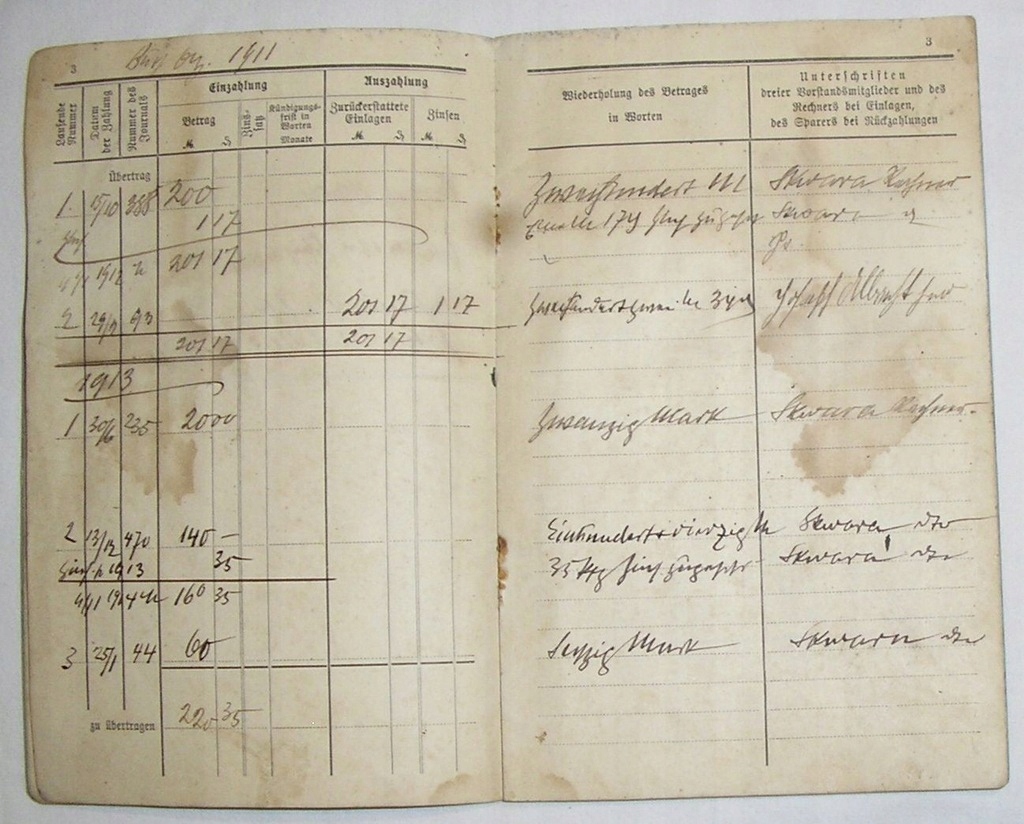 3
1911
Laufende Nummer
Datum der Zahlung
Nummer des Journals
Einzahlung
Betrag
ℳ ₰
Zinssatz
Kündigungsfrist in Worten
Monate
Auszahlung
Zurückerstattete Einlagen
ℳ ₰
Zinsen
ℳ ₰
Übertrag
1. 15/10 388 200
1 17
201 17
2 93 201 17 1 17
201 17 201 17
1913
1 30/6 235 20 00
2 13/12 470 140 –
1913 35
160 35
3 25/1 44 60
zu übertragen 220 35
3
Wiederholung des Betrages
in Worten
Unterschriften
dreier Vorstandsmitglieder und des
Rechners bei Einlagen,
des Sparers bei Rückzahlungen
Zweihundert M Skwara Rechner
Skwara
Zwanzig Mark Skwara Rechner
Einhundertvierzig M Skwara dto
35 Pfg Skwara dto
Sechzig Mark Skwara dto